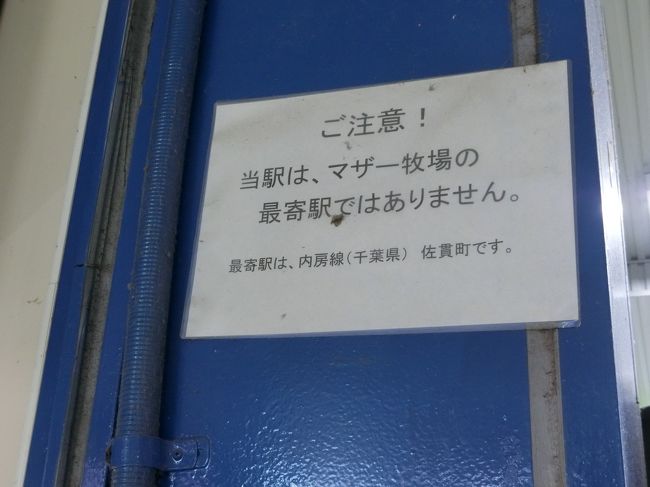 ご注意！
当駅は、マザー牧場の
最寄駅ではありません。
最寄駅は、内房線(千葉県) 佐貫町です。